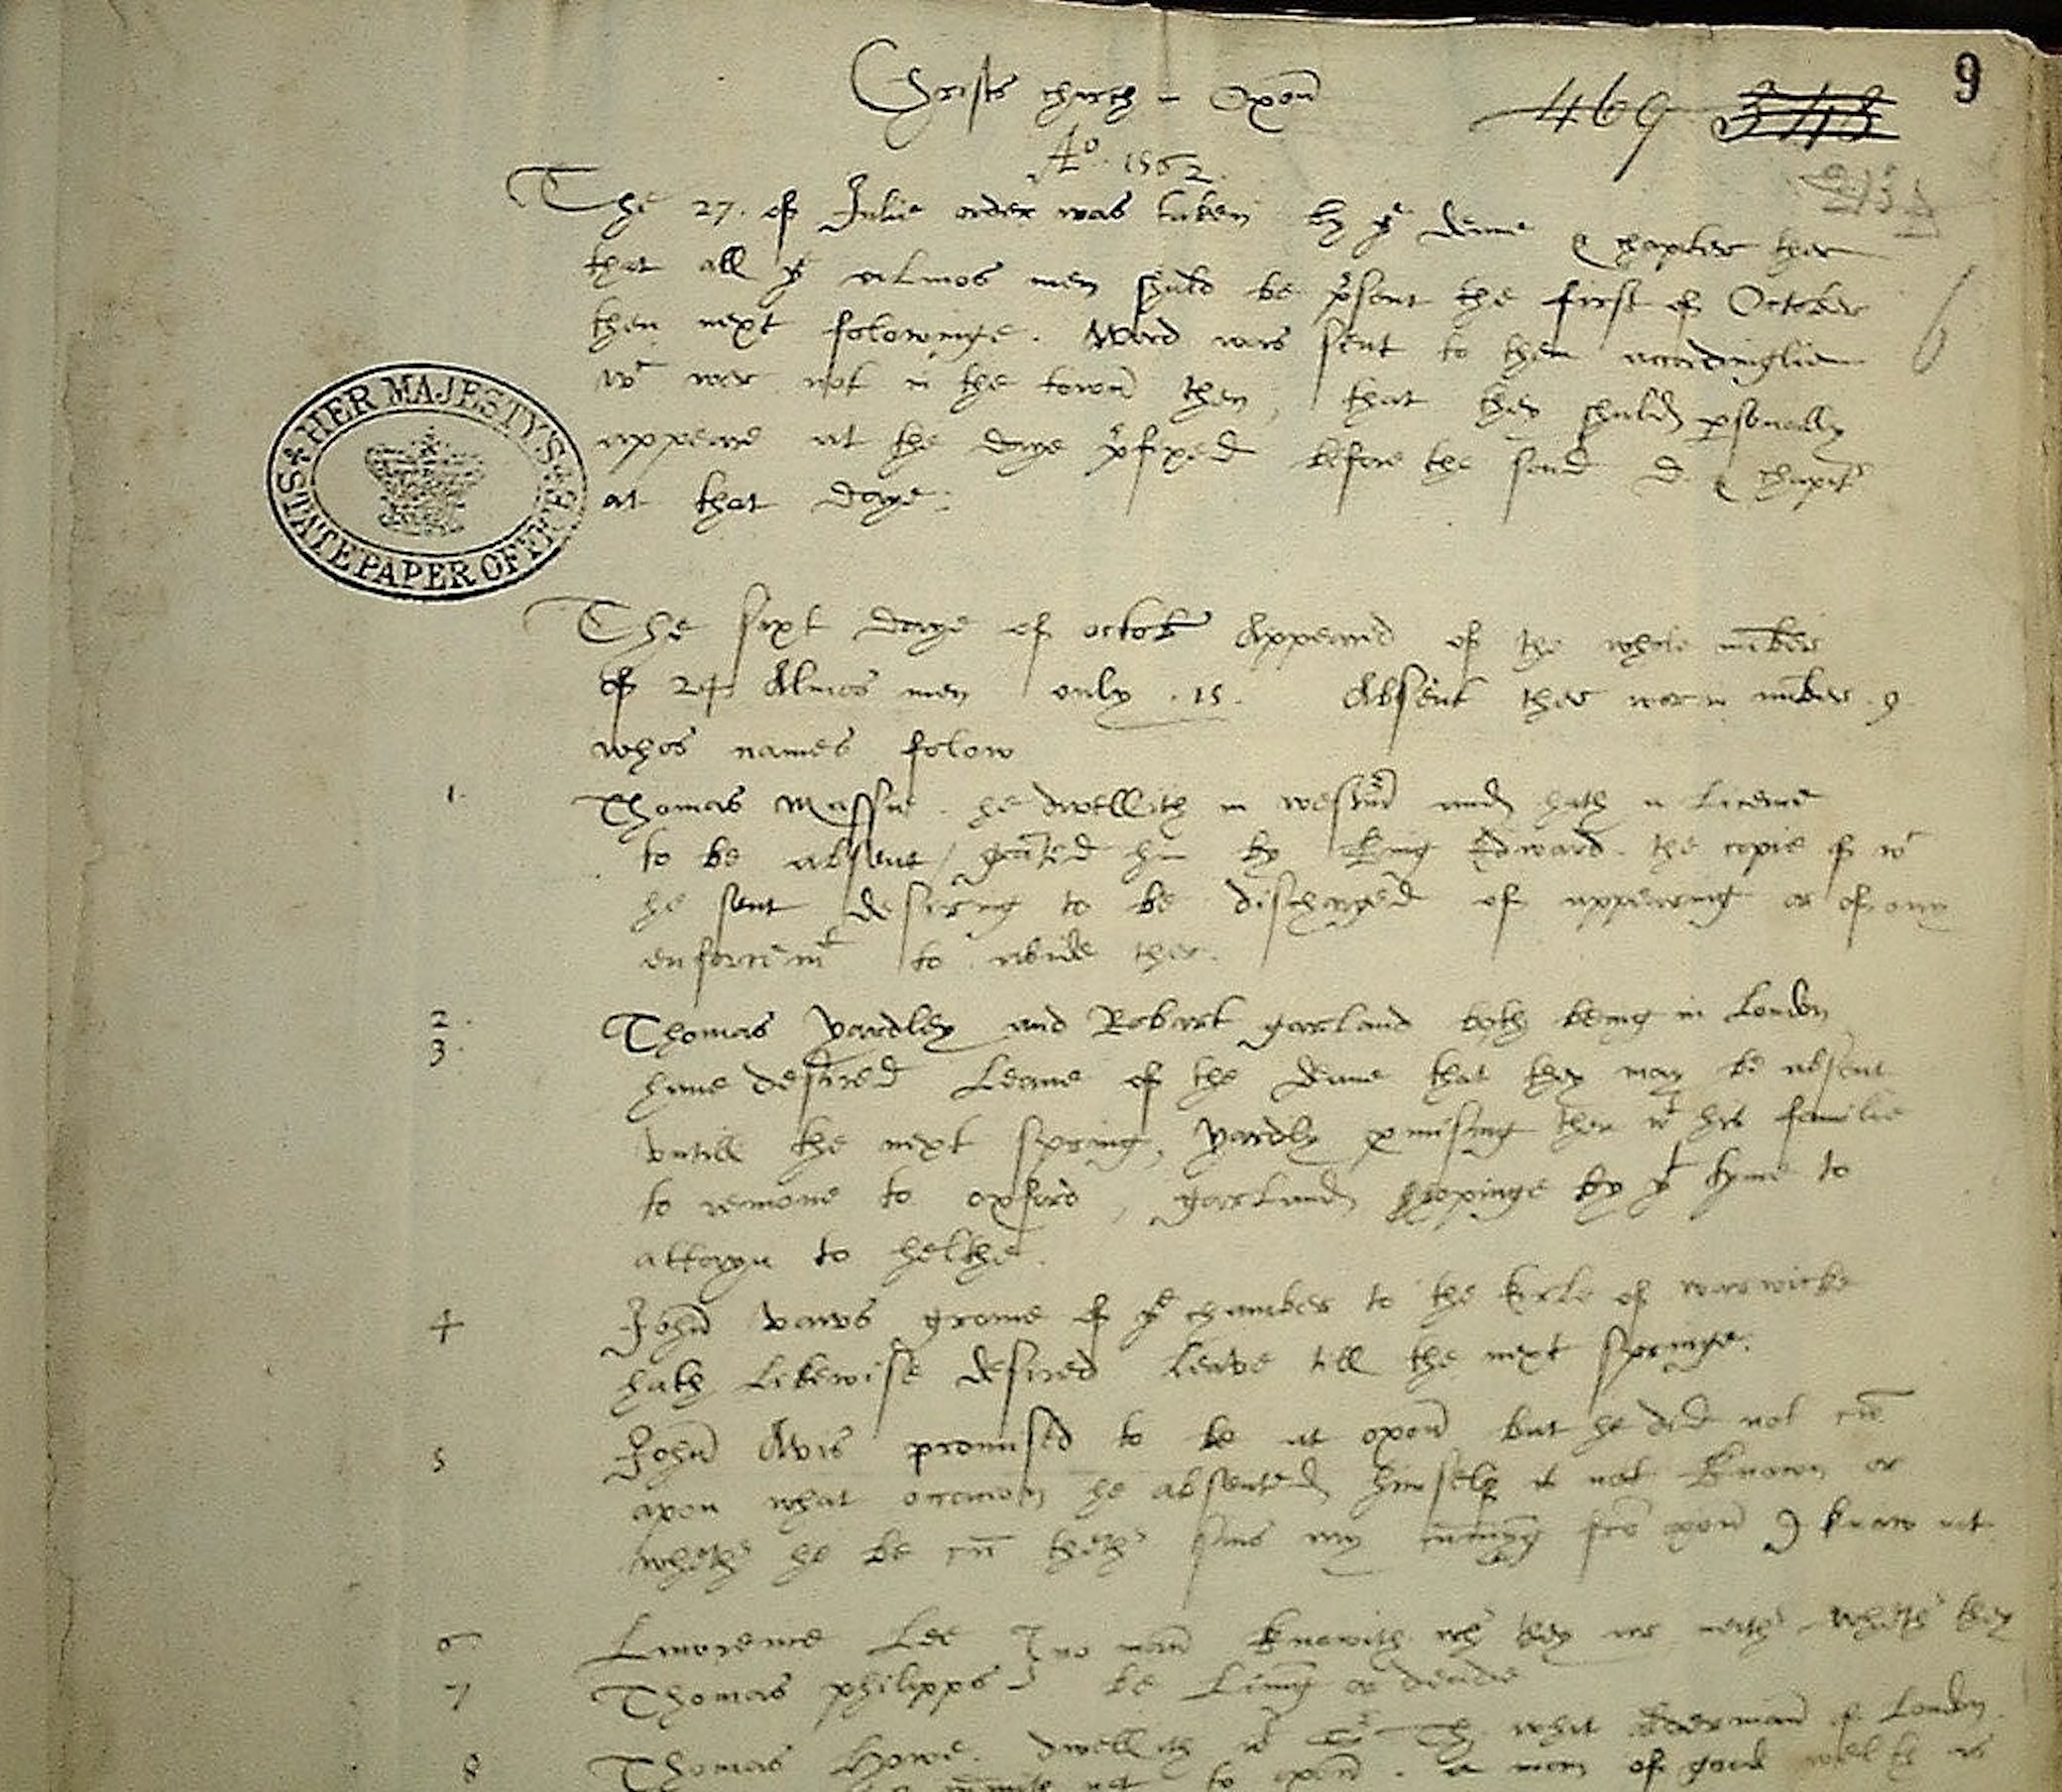 9
Christs church in Oxoñ
469 343
Aº. 1562.
The 27. of Julie order was taken by yᵉ deane & chapter ther
that all yᵉ almos men shuld be p̃sent the first of October
then next folowinge. Word was sent to them accordinglie
wᶜ wer not in the towñ then, that they shuld psonally
appeare at the daye p̃fixed before the said d. & chapt͂
at that daye.
HER MAJESTY'S STATE PAPER OFFICE
6
The sixt daye of octob͂ Appeared of the whole nūber
of 24 Almos men only .15. Absent ther wer in nūber .9
whos names folow
1. Thomas Massie. he dwellith in and hath a licence
to be absent / grãted hī by King Edward. the copie of wᶜ
he sent desiring to be discharged of appearing or of any
enforcemᵗ to abide ther.
2. Thomas yardley and Robart garland both being in London
3. haue desired Leaue of the deane that they may be absent
vntill the next spring, yardly pmising then wᵗ his familie
to remoue to oxford, garland hopinge by yᵗ tyme to
attayn to helthe.
4 Johñ vavs grome of yᵉ chamber to the Erle of warwicke
hath Likewise desired leave till the next springe.
5 Johñ Avis promised to be at oxoñ but he did not cũe
apon what occasion he absented himself is not knowen or
wheth͂ he be cũ theth͂ sins my cũmyng frõ oxoñ I know not
6 Lawrence Lee } no mañ knowith wh͂ they are neith͂ wheth͂ they
7 Thomas philipps } be Living or deade
8 Thomas Howe. dwellith wᵗ Sʳ Th. whit Alderman of London
not to oxoñ. a man of good welth as